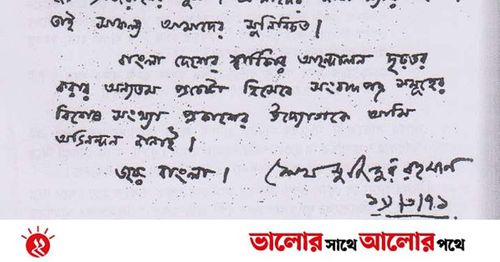 তাই সাফল্য আমাদের সুনিশ্চিত।
বাংলা দেশের স্বাধিকার আন্দোলন দৃঢ়তর
করার অন্যতম প্রচেষ্টা হিসেবে সংবাদপত্র সমূহের
বিশেষ সংখ্যা প্রকাশের উদ্যোগকে আমি
অভিনন্দন জানাই।
জয় বাংলা।
শেখ মুজিবুর রহমান
ভালোর সাথে আলোর পথে